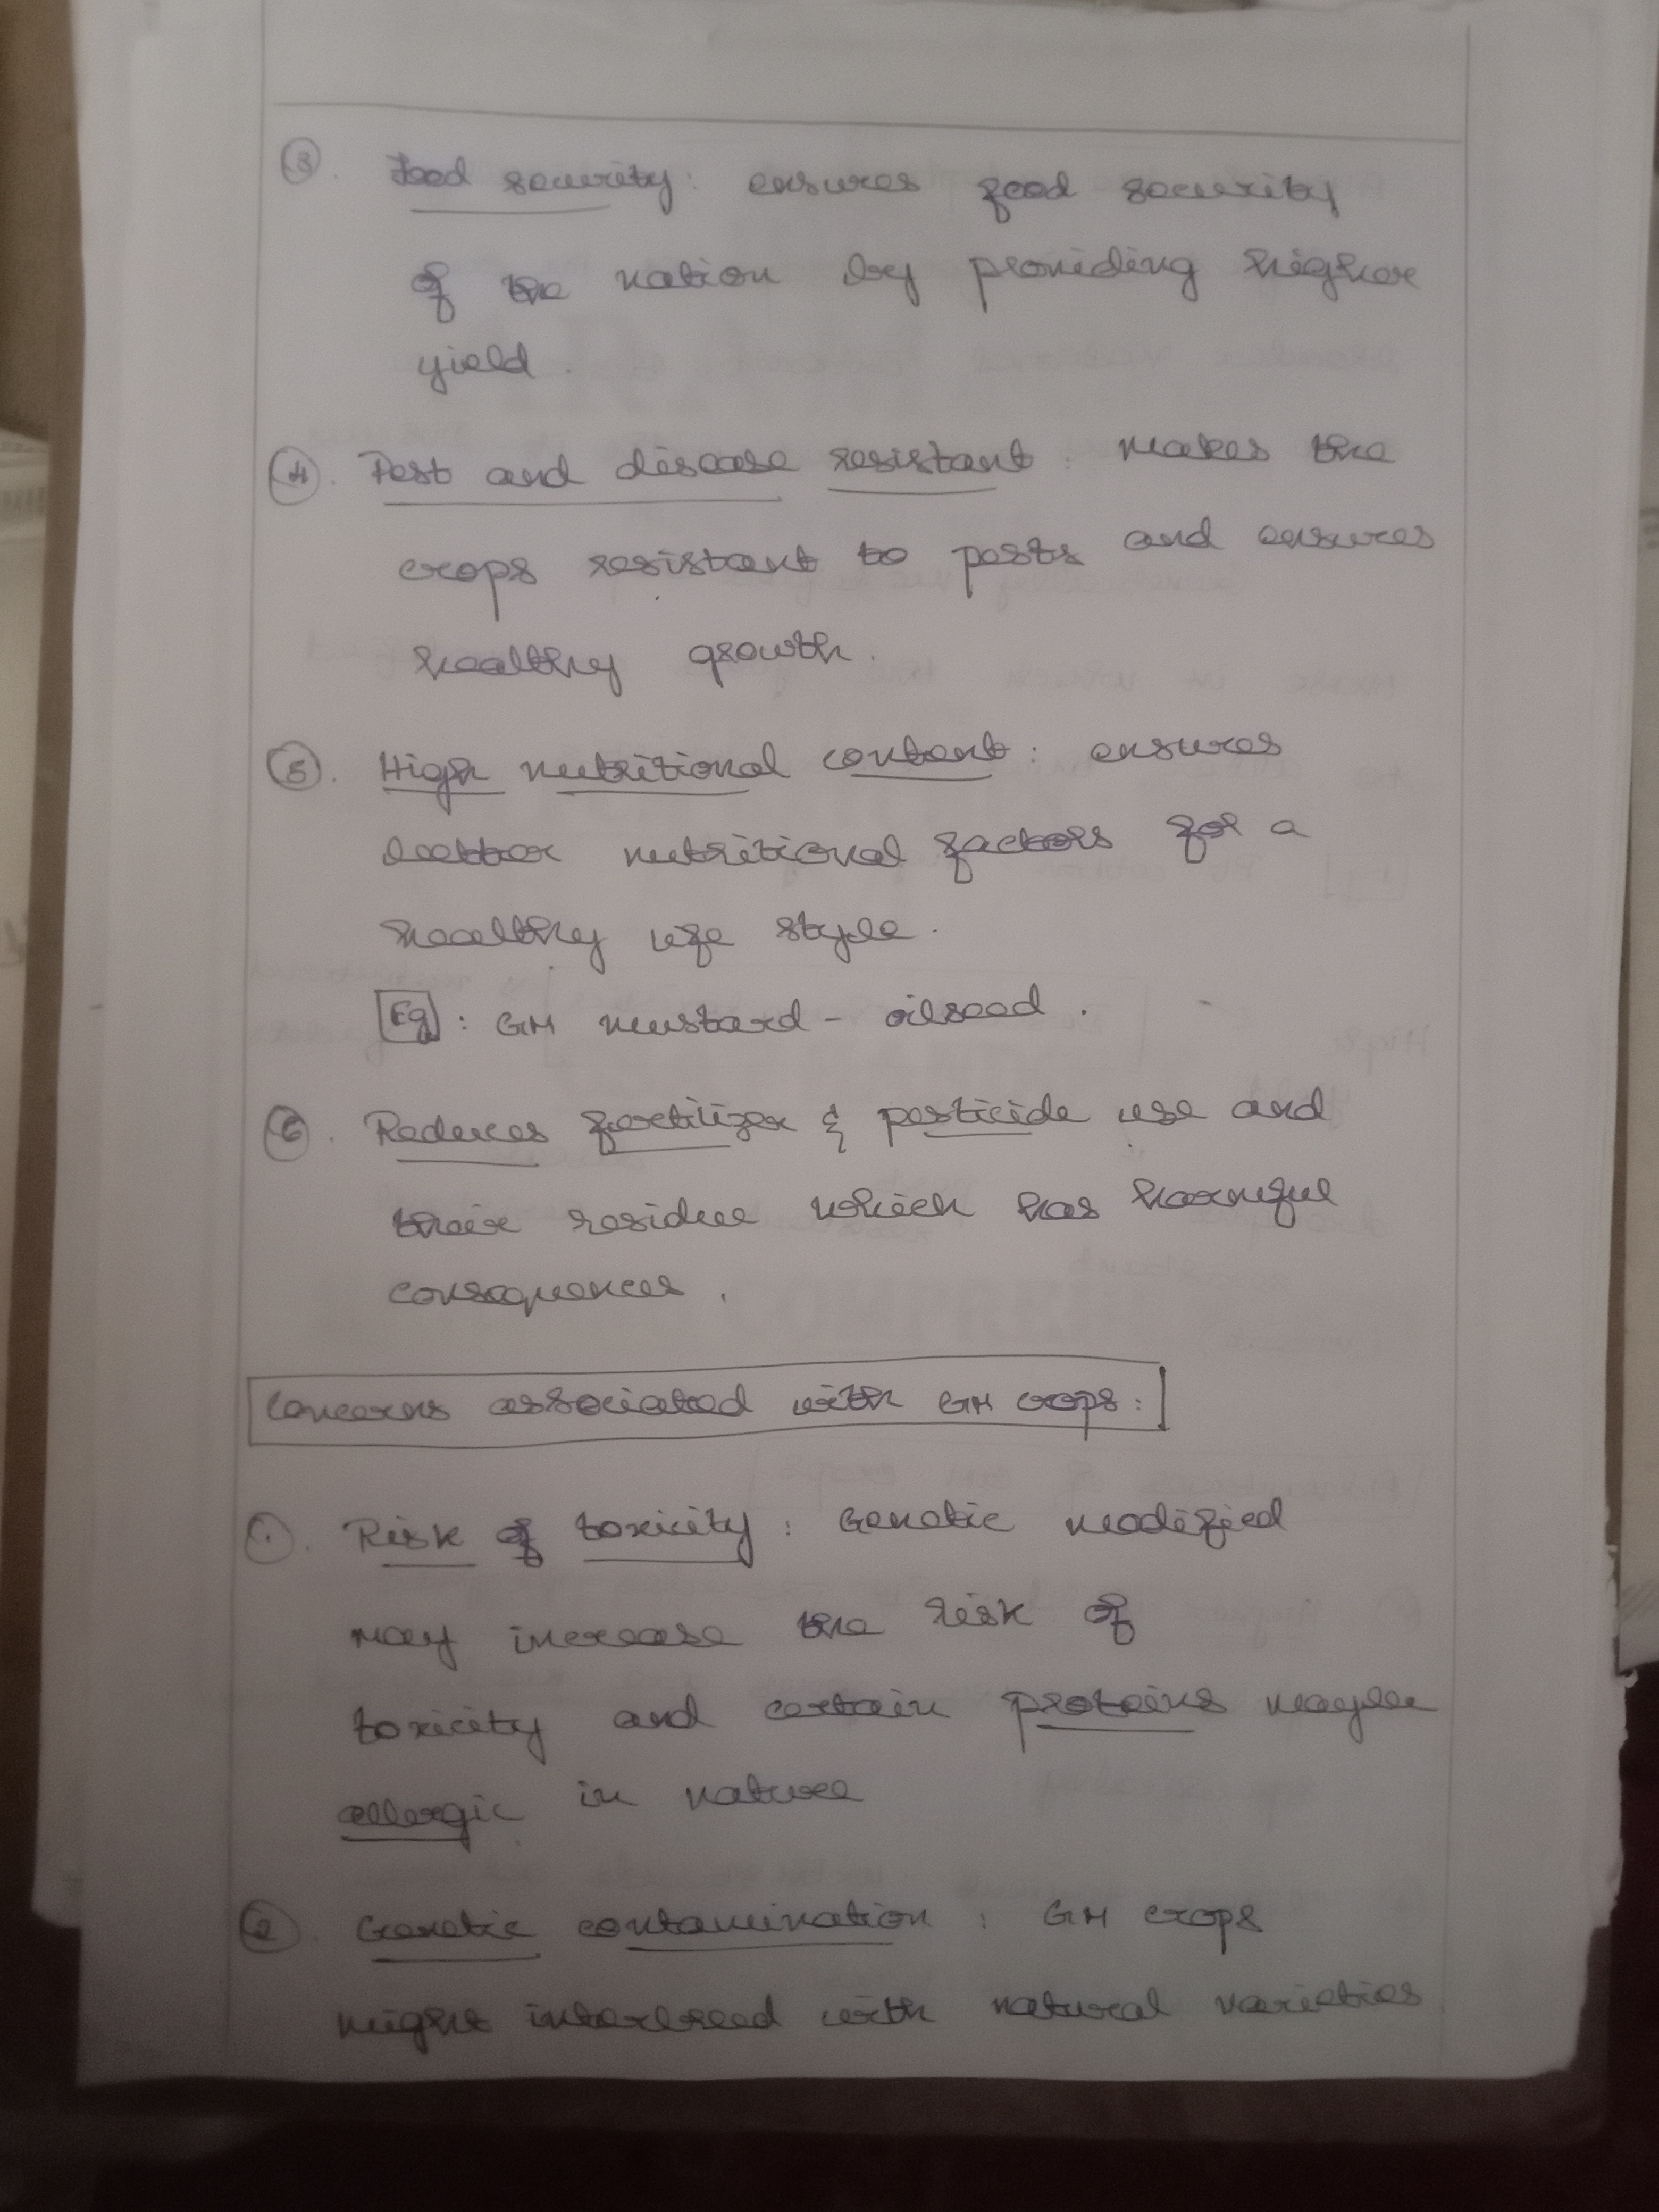 ③. Food security: ensures food security
of the nation by providing higher
yield.
④. Pest and disease resistant: Makes the
crops resistant to pests and ensures
healthy growth.
⑤. High nutritional content: ensures
better nutritional factors for a
healthy life style.
Eg: GM mustard - oilseed.
⑥. Reduces fertilizer & pesticide use and
their residue which has harmful
consequences.
Concerns associated with GM crops:
①. Risk of toxicity: Genetic modified
may increase the risk of
toxicity and certain proteins maybe
allergic in nature
②. Genetic contamination: GM crops
might interbreed with natural varieties